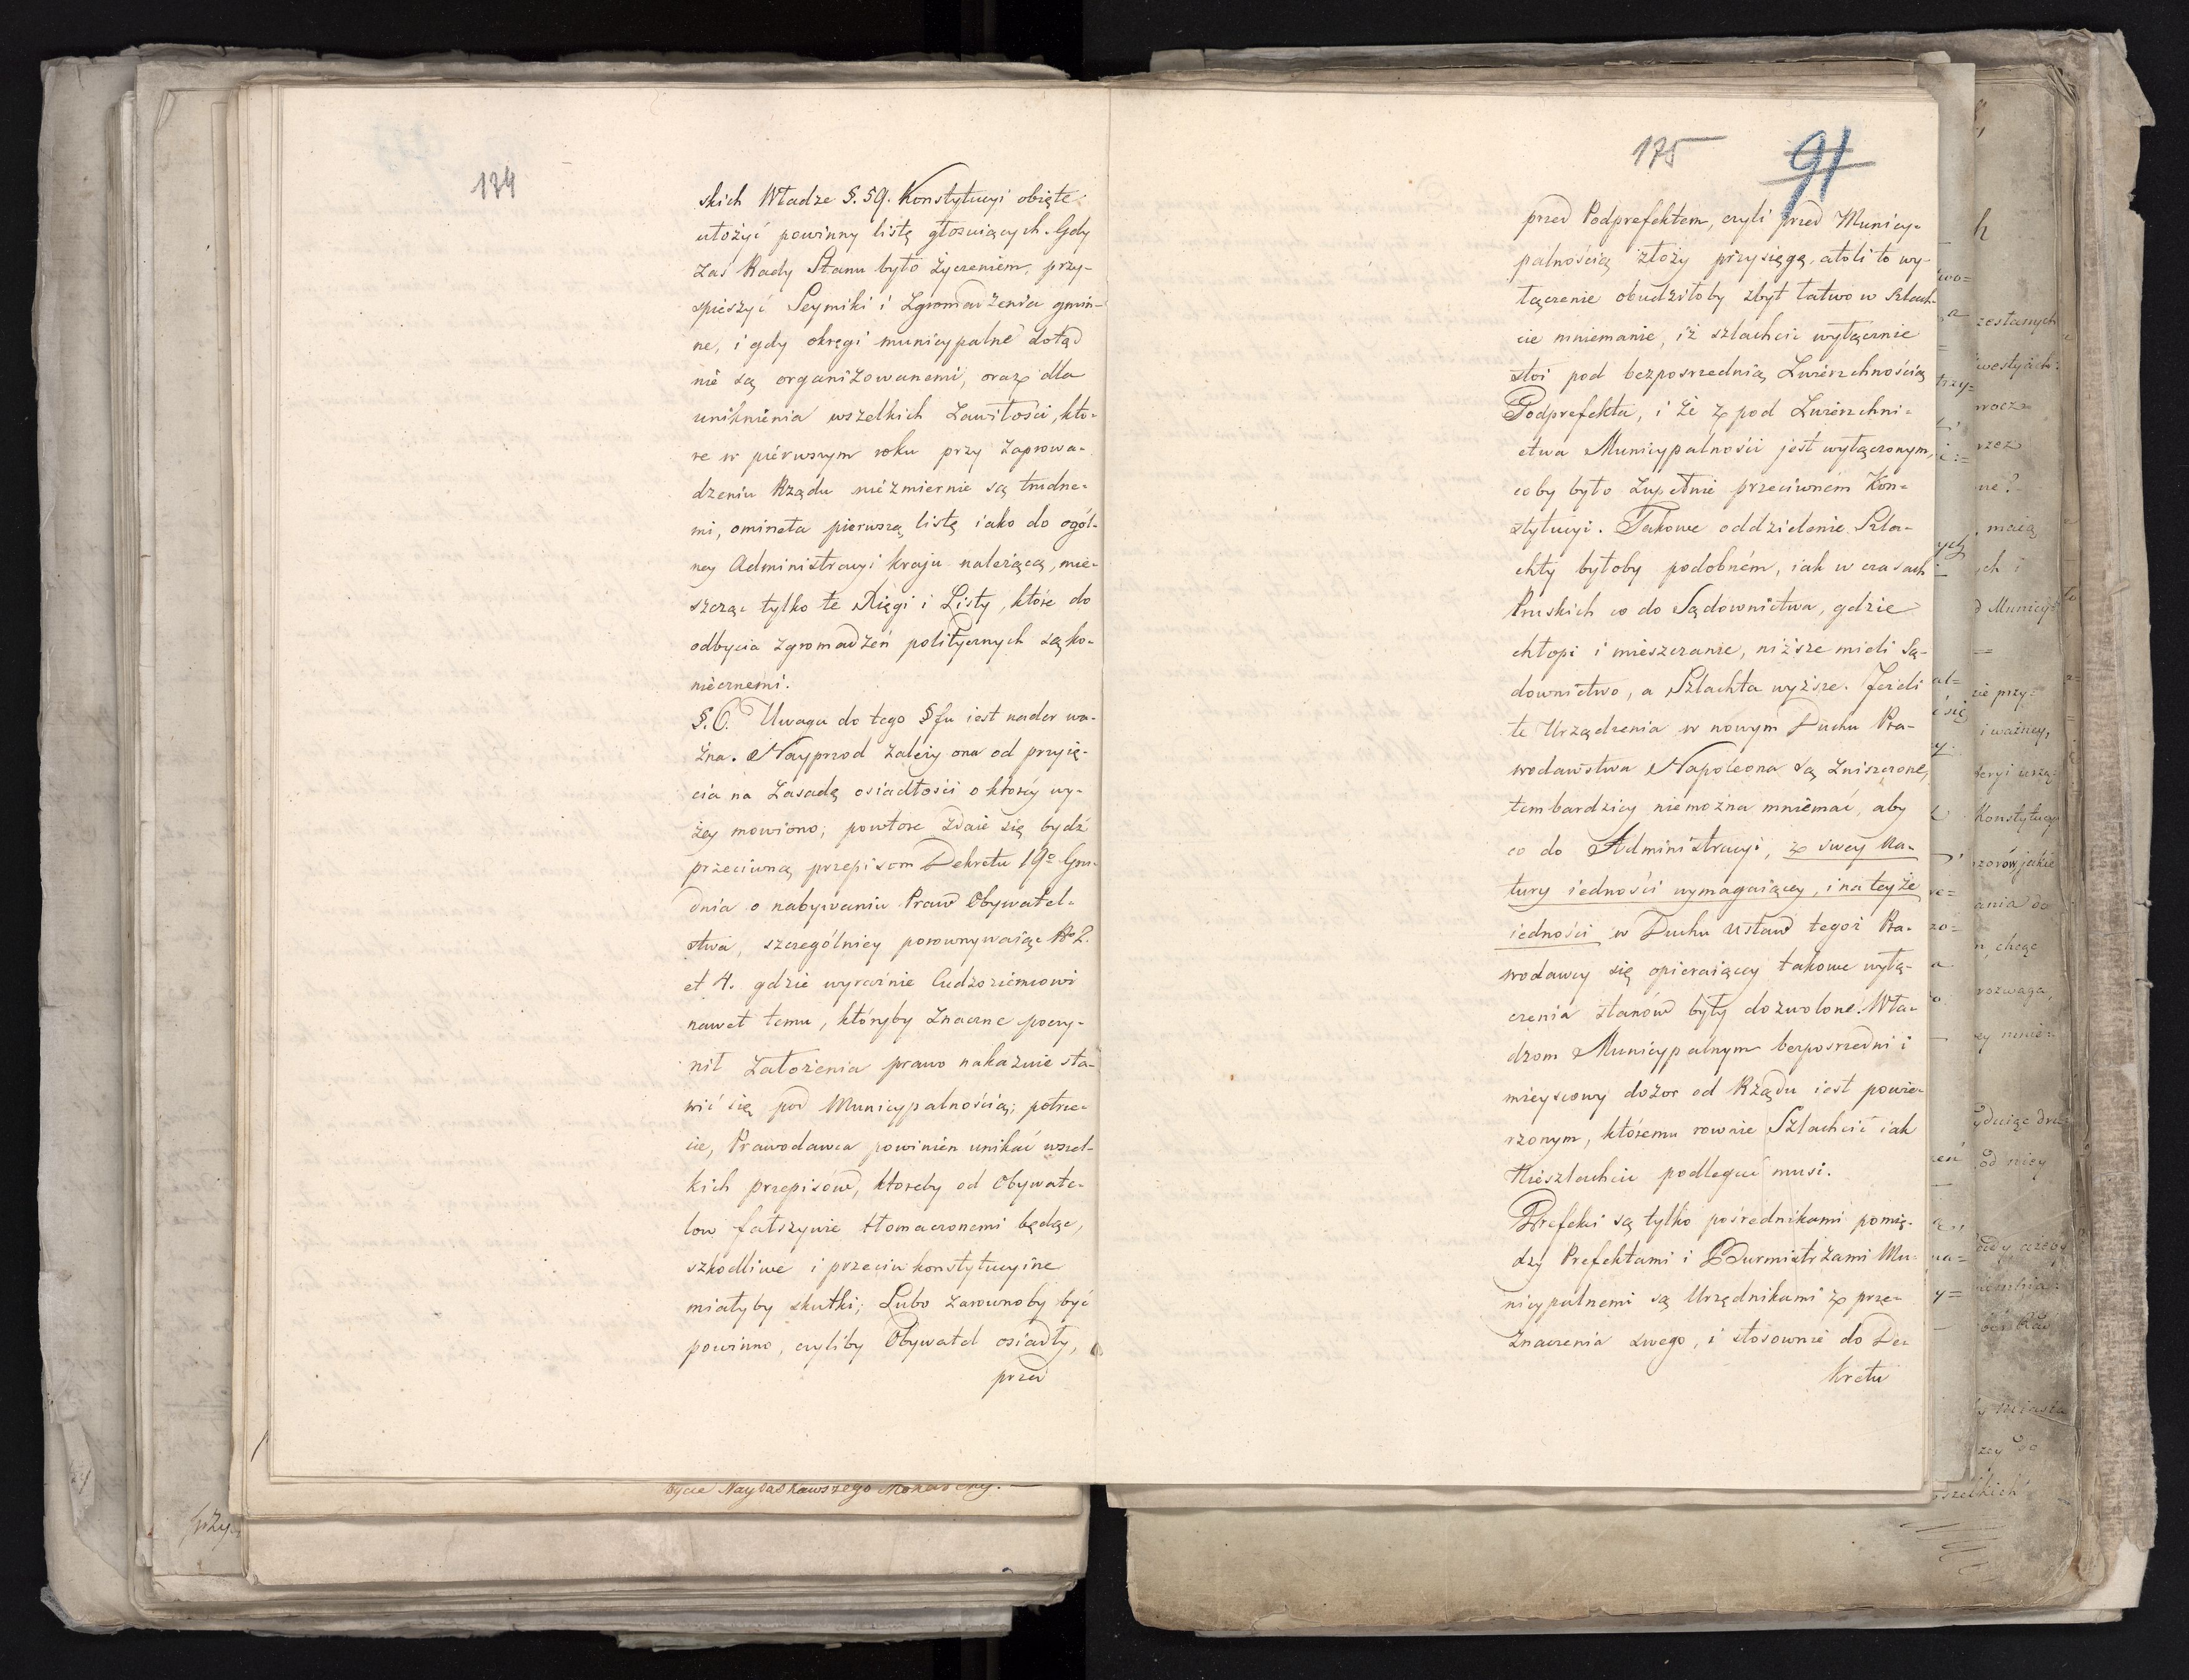 174
skich Władze §. 59. Konstytucyi obięte
ułożyć powinny listę głosuiących. Gdy
zaś Rady Stanu było życzeniem, przy-
spieszyć Seymiki i Zgromadzenia gmin-
ne, i gdy okręgi municypalne dotąd
nie są organizowanemi, oraz dla
uniknienia wszelkich Zawiłości, któ-
re w piérwszym roku przy zaprowa-
dzeniu Rządu niezmiernie są trudne-
mi, omineła pierwszą listę iako do ogól-
ney Administracyi kraju należącą, mie-
szcząc tylko te Xięgi i Listy, które do
odbycia zgromadzeń politycznych są ko-
niecznemi.
§. 6. Uwaga do tego §fu iest nader wa-
żna. Nayprzod zależy ona od przyię-
cia na Zasadę osiadłości o którey wy-
żey mowiono; powtore zdaie się bydź
przeciwną przepisom Dekretu 19º Gru-
dnia o nabywaniu Praw Obywatel-
stwa, szczególniey porownywaiąc Nº 2.
et 4. gdzie wyraźnie Cudzoziemcowi
nawet temu, któryby znaczne poczy-
nił Założenia prawo nakazuie sta-
wić się pod Municypalnością; potrze-
cie, Prawodawca powinien unikać wszel-
kich przepisów, ktoreby od Obywate-
low fałszywie tłomaczonemi będąc,
szkodliwe i przeciw konstytucyine
miałyby skutki; Lubo zarownoby być
powinno, czyliby Obywatel osiadły,
przed
175
91
przed Podprefektem, czyli przed Municy-
palnością złoży przysięgę, atoli to wy-
łączenie obudziłoby zbyt łatwo w Szlach-
cie mniemanie, iż szlachcic wyłącznie
stoi pod bezposrzednią Zwierzchnością
Podprefekta, i że z pod Zwierzchni-
ctwa Municypalności jest wyłączonym,
coby było zupełnie przeciwnem Kon-
stytucyi. Takowe oddzielenie Szla-
chty byłoby podobném, iak w czasach
Pruskich co do Sądownictwa, gdzie
chłopi i mieszczanie, niższe mieli Są-
downictwo, a Szlachta wyższe. Jeżeli
te Urządzenia w nowym Duchu Pra-
wodawstwa Napoleona są zniszczone,
tembardziey niemożna mniemać, aby
co do Administracyi, z swey Na-
tury iedności wymagaiącey, i na teyże
iedności w Duchu Ustaw tegoż Pra-
wodawcy się opieraiącey takowe wyłą-
czenia stanów były dozwolone. Wła-
dzom Municypalnym bezposrzedni i
mieyscowy dozor od Rządu iest powie-
rzonym, któremu rownie Szlachcic iak
Nieszlachcic podlegać musi.
Prefekci są tylko pośrednikami pomię-
dzy Prefektami i Burmistrzami Mu-
nicypalnemi są Urzędnikami z prze-
znaczenia swego, i stosownie do De-
kretu